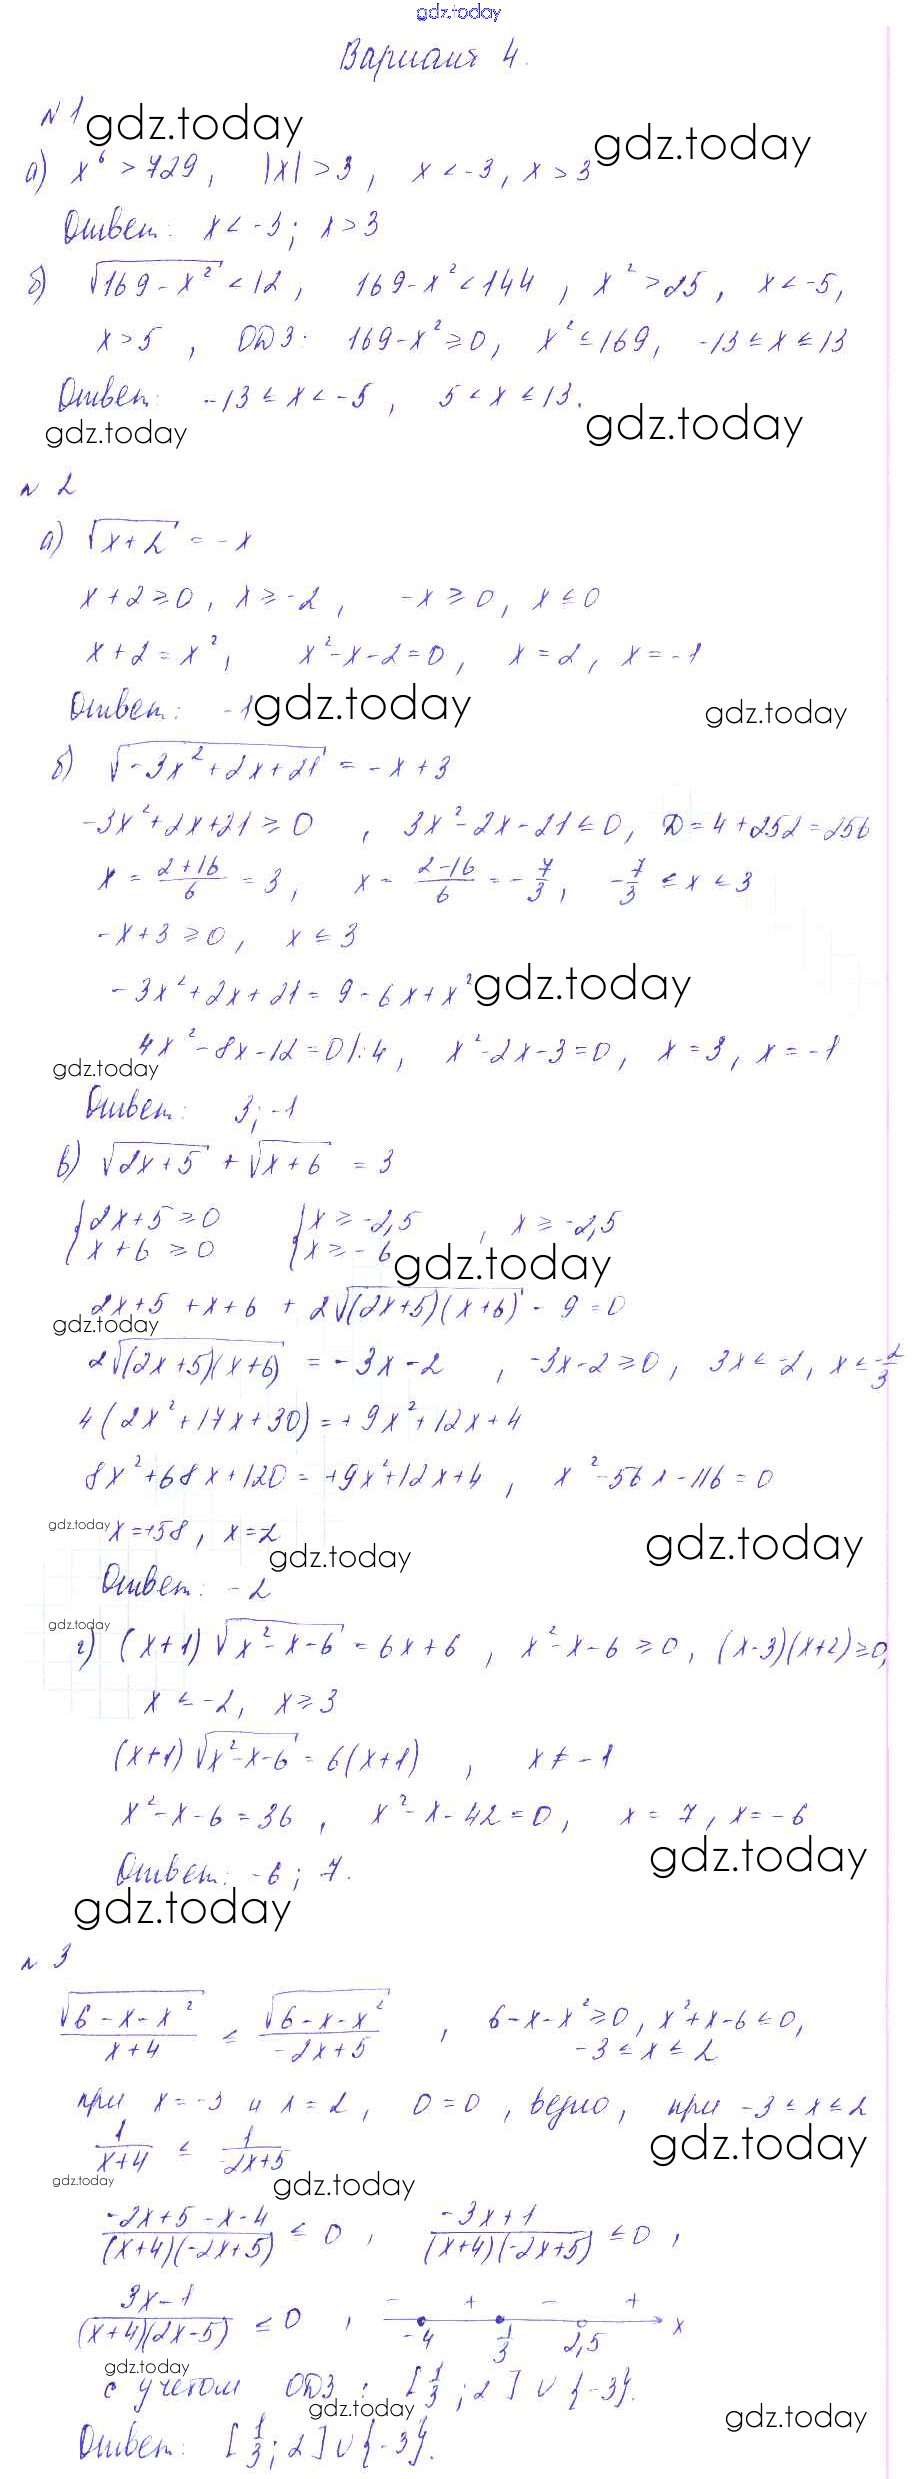 gdz.today
Вариант 4.
N 1 gdz.today gdz.today
а) x⁶ > 729, |x| > 3, x < -3, x > 3
Ответ: x < -3; x > 3
б) √(169 - x²) < 12, 169 - x² < 144, x² > 25, x < -5,
x > 5, ОДЗ: 169 - x² ≥ 0, x² ≤ 169, -13 ≤ x ≤ 13
Ответ: -13 ≤ x < -5, 5 < x ≤ 13.
gdz.today gdz.today
N 2
а) √(x+2) = -x
x + 2 ≥ 0, x ≥ -2, -x ≥ 0, x ≤ 0
x + 2 = x², x² - x - 2 = 0, x = 2, x = -1
Ответ: -1 gdz.today gdz.today
б) √(-3x² + 2x + 21) = -x + 3
-3x² + 2x + 21 ≥ 0, 3x² - 2x - 21 ≤ 0, D = 4 + 252 = 256
x = (2+16)/6 = 3, x = (2-16)/6 = -7/3, -7/3 ≤ x ≤ 3
-x + 3 ≥ 0, x ≤ 3
-3x² + 2x + 21 = 9 - 6x + x² gdz.today
4x² - 8x - 12 = 0 |:4, x² - 2x - 3 = 0, x = 3, x = -1
gdz.today
Ответ: 3; -1
в) √(2x+5) + √(x+6) = 3
{2x + 5 ≥ 0 {x ≥ -2,5, x ≥ -2,5
{x + 6 ≥ 0 {x ≥ -6
gdz.today
2x + 5 + x + 6 + 2√((2x+5)(x+6)) - 9 = 0
gdz.today
2√((2x+5)(x+6)) = -3x - 2, -3x - 2 ≥ 0, 3x ≤ -2, x ≤ -2/3
4(2x² + 17x + 30) = +9x² + 12x + 4
8x² + 68x + 120 = +9x² + 12x + 4, x² - 56x - 116 = 0
gdz.today x = +58, x = -2 gdz.today
gdz.today
Ответ: -2
gdz.today
г) (x+1)√(x² - x - 6) = 6x + 6, x² - x - 6 ≥ 0, (x-3)(x+2) ≥ 0,
x ≤ -2, x ≥ 3
(x+1)√(x² - x - 6) = 6(x+1), x ≠ -1
x² - x - 6 = 36, x² - x - 42 = 0, x = 7, x = -6
Ответ: -6; 7. gdz.today
gdz.today
N 3
√(6 - x - x²)/(x+4) ≤ √(6 - x - x²)/(-2x+5), 6 - x - x² ≥ 0, x² + x - 6 ≤ 0,
-3 ≤ x ≤ 2
при x = -3 и x = 2, 0 = 0, верно, при -3 ≤ x ≤ 2
1/(x+4) ≤ 1/(-2x+5) gdz.today
gdz.today gdz.today
(-2x+5-x-4)/((x+4)(-2x+5)) ≤ 0, (-3x+1)/((x+4)(-2x+5)) ≤ 0,
(3x-1)/((x+4)(2x-5)) ≤ 0, - + - + -4 1/3 2,5 x
gdz.today
с учётом ОДЗ: [1/3; 2] ∪ {-3}.
gdz.today gdz.today
Ответ: [1/3; 2] ∪ {-3}.